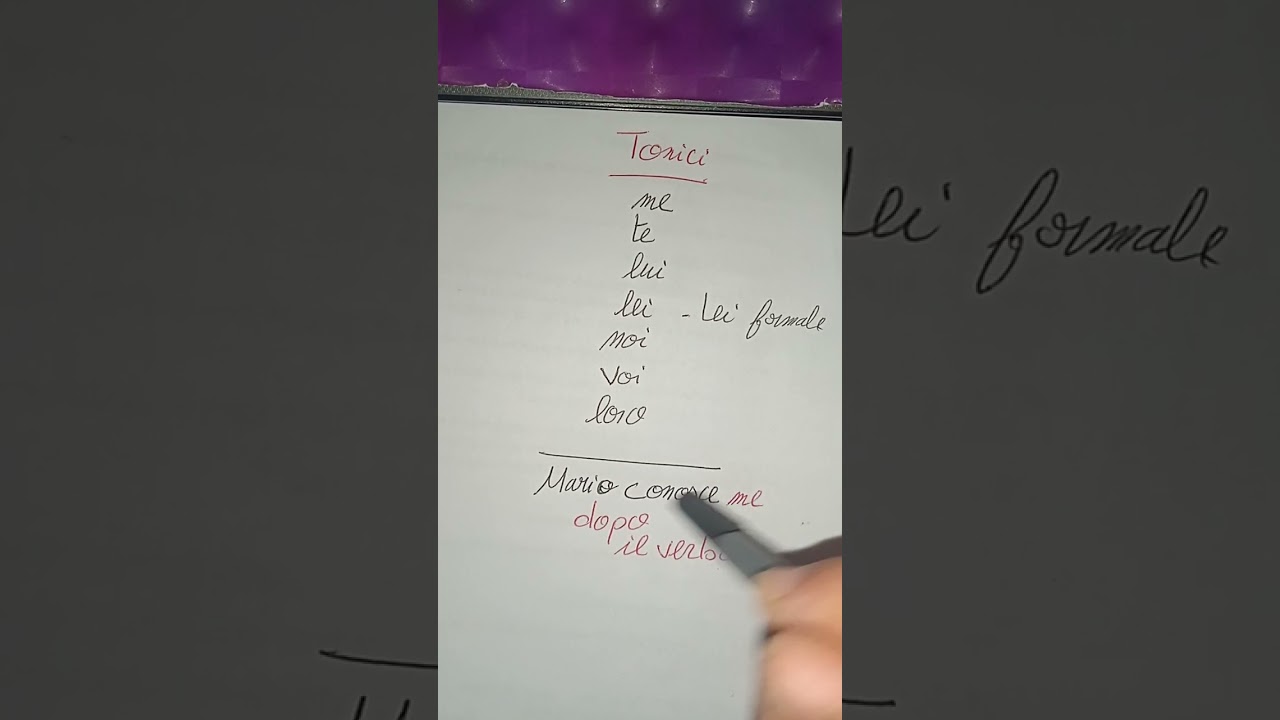 Tonici
me
te
lui
lei - Lei formale
noi
voi
loro
Mario conosce me
dopo
il verbo